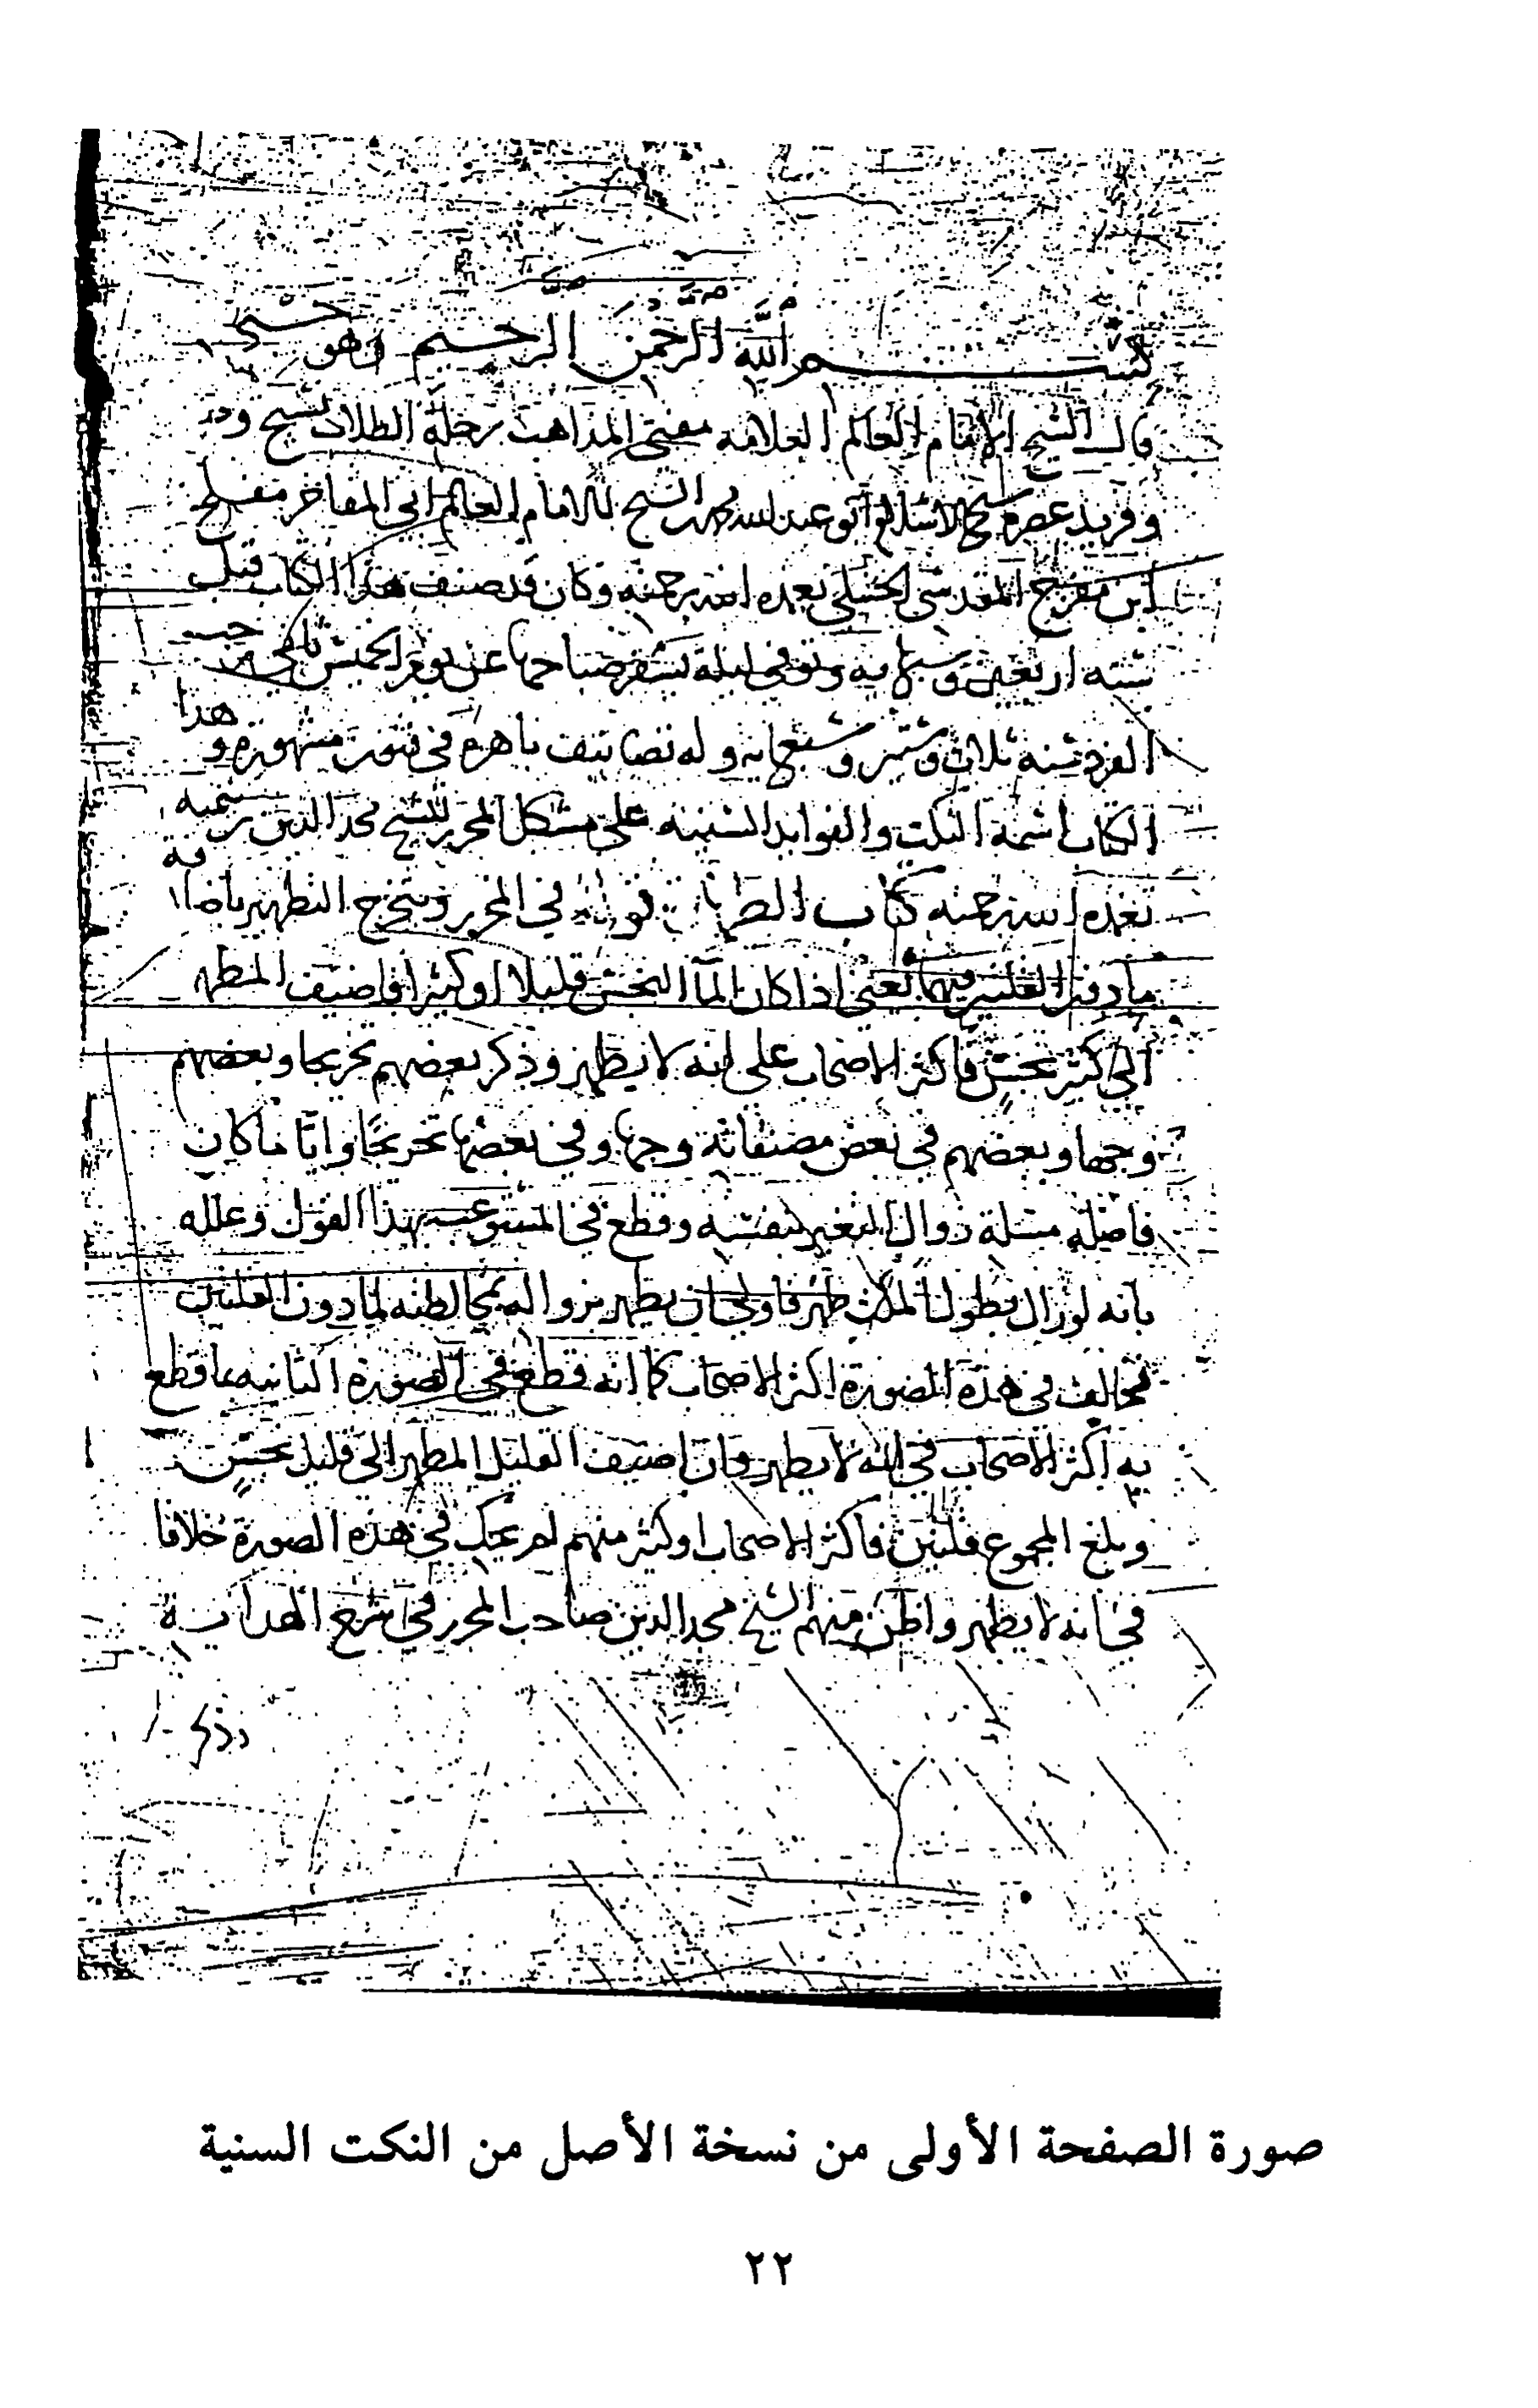 بسم الله الرحمن الرحيم وهو حسبي
قال الشيخ الامام العالم العلامه مفتي المذاهب رحلة الطلاب نسيج وحده
وفريد عصره شيخ الاسلام ابو عبد الله محمد بن الشيخ الامام العالم ابي المفاخر مفلح
ابن مفرج المقدسي الحنبلي تغمده الله برحمته وكان قد صنف هذا الكتاب قبل
سنه اربعين وسبعمايه وتوفي ليلة يسفر صباحها عن يوم الخميس ثاني رجب
الفرد سنه ثلاث وستين وسبعمايه وله تصانيف باهره في فنون مشهوره وهذا
الكتاب اسمه النكت والفوايد السنيه على مشكل المحرر للشيخ مجد الدين بن تيميه
تغمده الله برحمته كتاب الطهارة قوله في المحرر ويتخرج التطهير باضافة
ما دون القلتين فيهما يعني اذا كان الماء النجس قليلا او كثيرا فاضيف المطهر
الى كثير نجس فاكثر الاصحاب على انه لا يطهر وذكر بعضهم تخريجا وبعضهم
وجها وبعضهم في بعض مصنفاته وجها وفي بعضها تخريجا وايا ما كان
فاصله مسئلة زوال التغير بنفسه وقطع في المستوعب بهذا القول وعلله
بانه لو زال بطول المكث طهر فاولى ان يطهر بزواله بمخالطته لما دون القلتين
فخالف في هذه الصورة اكثر الاصحاب كما انه قطع في الصورة الثانيه بما قطع
به اكثر الاصحاب في انه لا يطهر وان اضيف القليل المطهر الى قليل نجس
وبلغ المجموع قلتين فاكثر الاصحاب او كثير منهم لم يحك في هذه الصورة خلافا
في انه لا يطهر واظن منهم الشيخ مجد الدين صاحب المحرر في شرح الهداية
وذكر
صورة الصفحة الأولى من نسخة الأصل من النكت السنية
٢٢